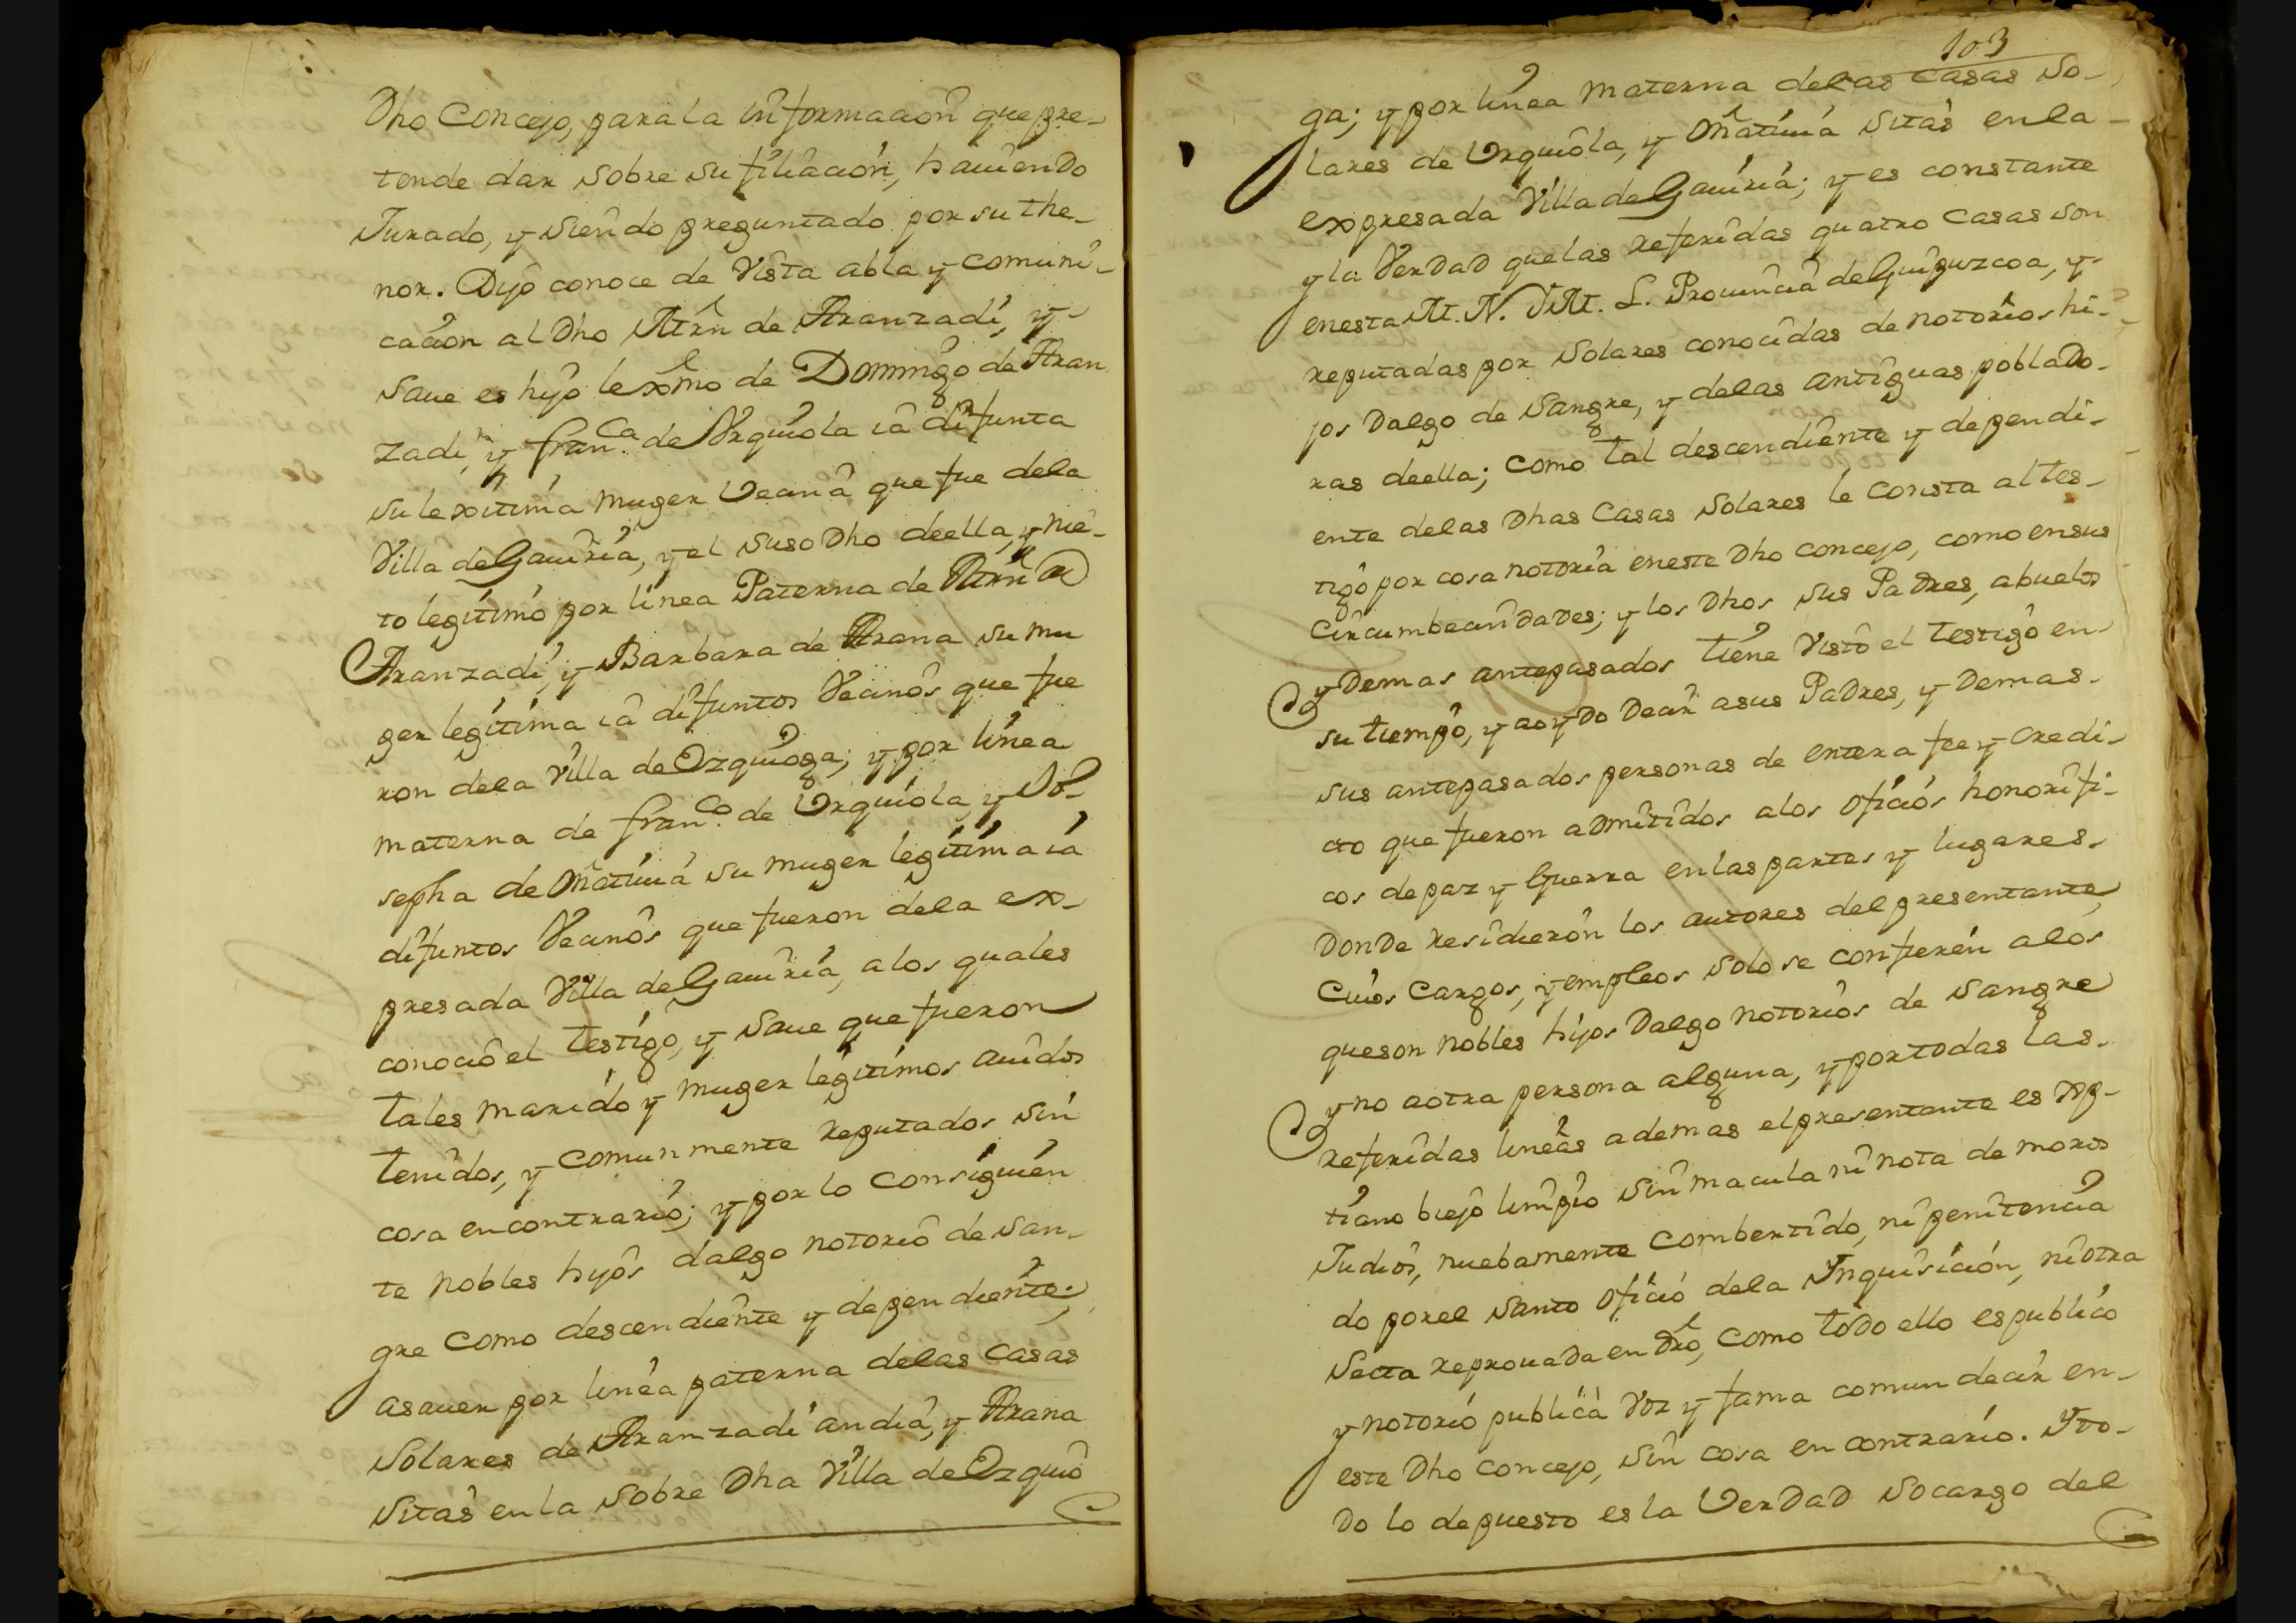 Dho Concejo, para la informacion que pre-
tende dar sobre su filiacion, haviendo
Jurado, y siendo preguntado por su the-
nor. Dijo conoce de Vista abla y comuni-
cacion al Dho Mrn de Aranzadi, y
save es hijo lexmo de Domingo de Aran
zadi, y Franca. de Vrquiola ia difunta
su lexitima muger Vecina que fue dela
Villa de Gaviria, y el suso Dho de ella, y nie-
to legitimo por linea Paterna de Mrn de
Aranzadi, y Barbara de Arana su mu
ger legitima ia difuntos Vecinos que fue
ron dela Villa de Ezquioga; y por linea
materna de franco. de Vrquiola, y Jo-
sepha de Oñativia su muger legitima ia
difuntos Vecinos que fueron dela ex-
presada Villa de Gaviria, a los quales
conocio el testigo, y save que fueron
tales marido y muger legitimos avidos
tenidos, y comunmente reputados sin
cosa en contrario; y por lo consiguien
te nobles hijos dalgo notorio de san-
gre como descendiente y dependiente;
asaver por linea paterna delas casas
Solares de Aranzadi andia, y Arana
sitas en la sobre Dha Villa de Ezquio
103
ga; y por linea materna delas casas so-
lares de Vrquiola, y Oñativia sitas en la
expresada Villa de Gaviria; y es constante
y la Verdad que las referidas quatro casas son
en esta M. N. y M. L. Provincia de Guipuzcoa, y
reputadas por solares conocidas de notorios hi-
jos Dalgo de sangre, y delas antiguas poblado-
ras de ella; como tal descendiente y dependi-
ente delas Dhas Casas Solares le consta al tes-
tigo por cosa notoria en este Dho concejo, como en sus
circumbecindades; y los Dhos sus Padres, abuelos
y Demas antepasados tiene Visto el testigo en
su tiempo, y aoydo Decir asus Padres, y Demas
sus antepasados personas de entera fee y credi-
cto que fueron admitidos alos oficios honorifi-
cos de paz y Guerra en las partes y lugares
Donde residieron los autores del presentante,
Cuios cargos, y empleos solo se confieren alos
que son nobles hijos Dalgo notorios de sangre
y no aotra persona alguna, y por todas las
referidas lineas ademas el presentante es xp-
tiano biejo limpio sin macula ni nota de moros
Judios, nuebamente combertido, ni penitencia
do por el santo oficio dela Inquisicion, ni otra
Secta reprovada en Dro, como todo ello es publico
y notorio publica Voz y fama comun decir en
este Dho concejo, sin cosa en contrario. Y to-
do lo depuesto es la Verdad socargo del